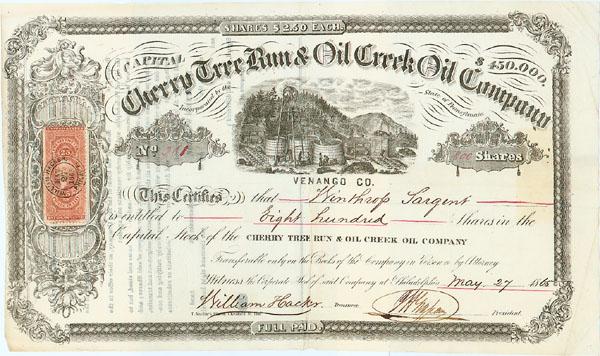 SHARES $2.50 EACH.
CAPITAL $450,000.
Cherry Tree Run & Oil Creek Oil Company
Incorporated by the State of Pennsylvania
No
800 Shares
VENANGO CO.
This Certifies, that Winthrop Sargent
is entitled to Eight hundred Shares in the
Capital Stock of the CHERRY TREE RUN & OIL CREEK OIL COMPANY
Transferable only on the Books of the Company in Person or by Attorney
Witness the Corporate Seal of said Company at Philadelphia May 27 1865
William Hacker Treasurer President.
FULL PAID